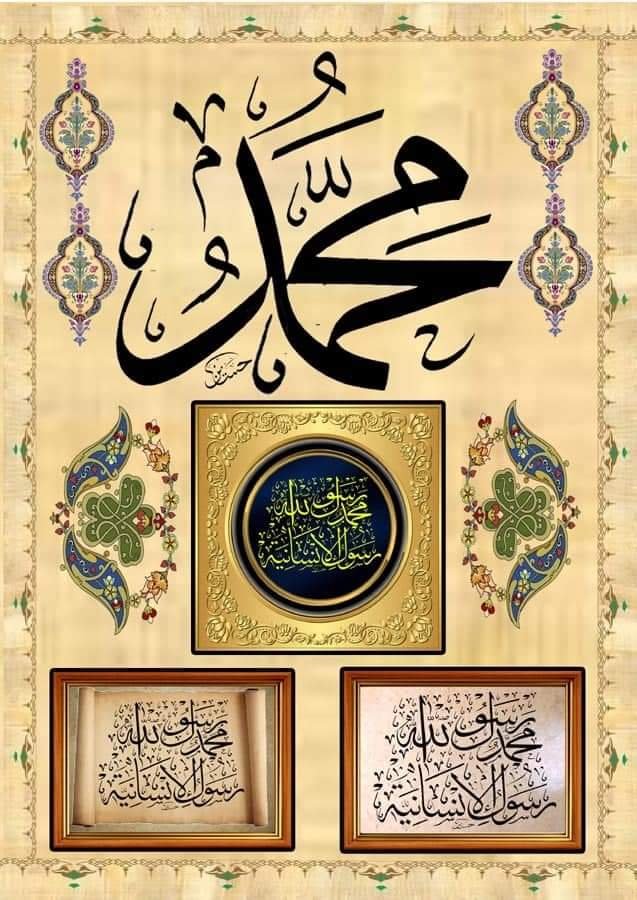 محمد
محمد رسول الله
رسول الإنسانية
محمد رسول الله
رسول الإنسانية
محمد رسول الله
رسول الإنسانية